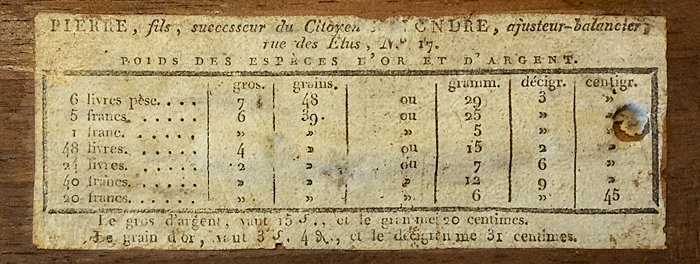 PIERRE, fils, successeur du Citoyen NDRE, ajusteur-balancier,
rue des Élus, N.º 17.
POIDS DES ESPÈCES D'OR ET D'ARGENT.
gros. grains. gramm. décigr. centigr.
6 livres pèse..... 7 48 ou 29 3 »
5 francs...... 6 39. ou 25 » »
1 franc...... » » » 5 » »
48 livres...... 4 » ou 15 2 »
24 livres...... 2 » ou 7 6 »
40 francs...... » » » 12 9 »
20 francs...... » » » 6 » 45
Le gros d'argent, vaut 15 et le gramme 20 centimes.
Le grain d'or, vaut 3 4 et le décigramme 31 centimes.